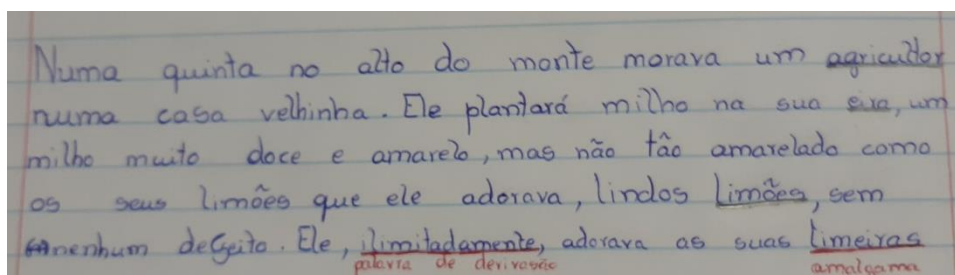 Numa quinta no alto do monte morava um agricultor
numa casa velhinha. Ele plantará milho na sua eira, um
milho muito doce e amarelo, mas não tão amarelado como
os seus limões que ele adorava, lindos limões, sem
nenhum defeito. Ele, ilimitadamente, adorava as suas limeiras
palavra de derivação amalgama